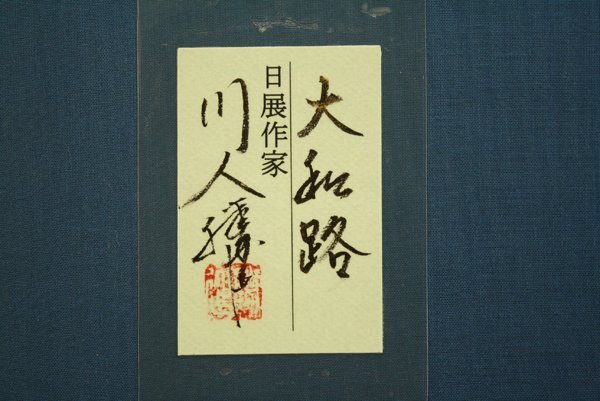 大和路
日展作家
川人勝延